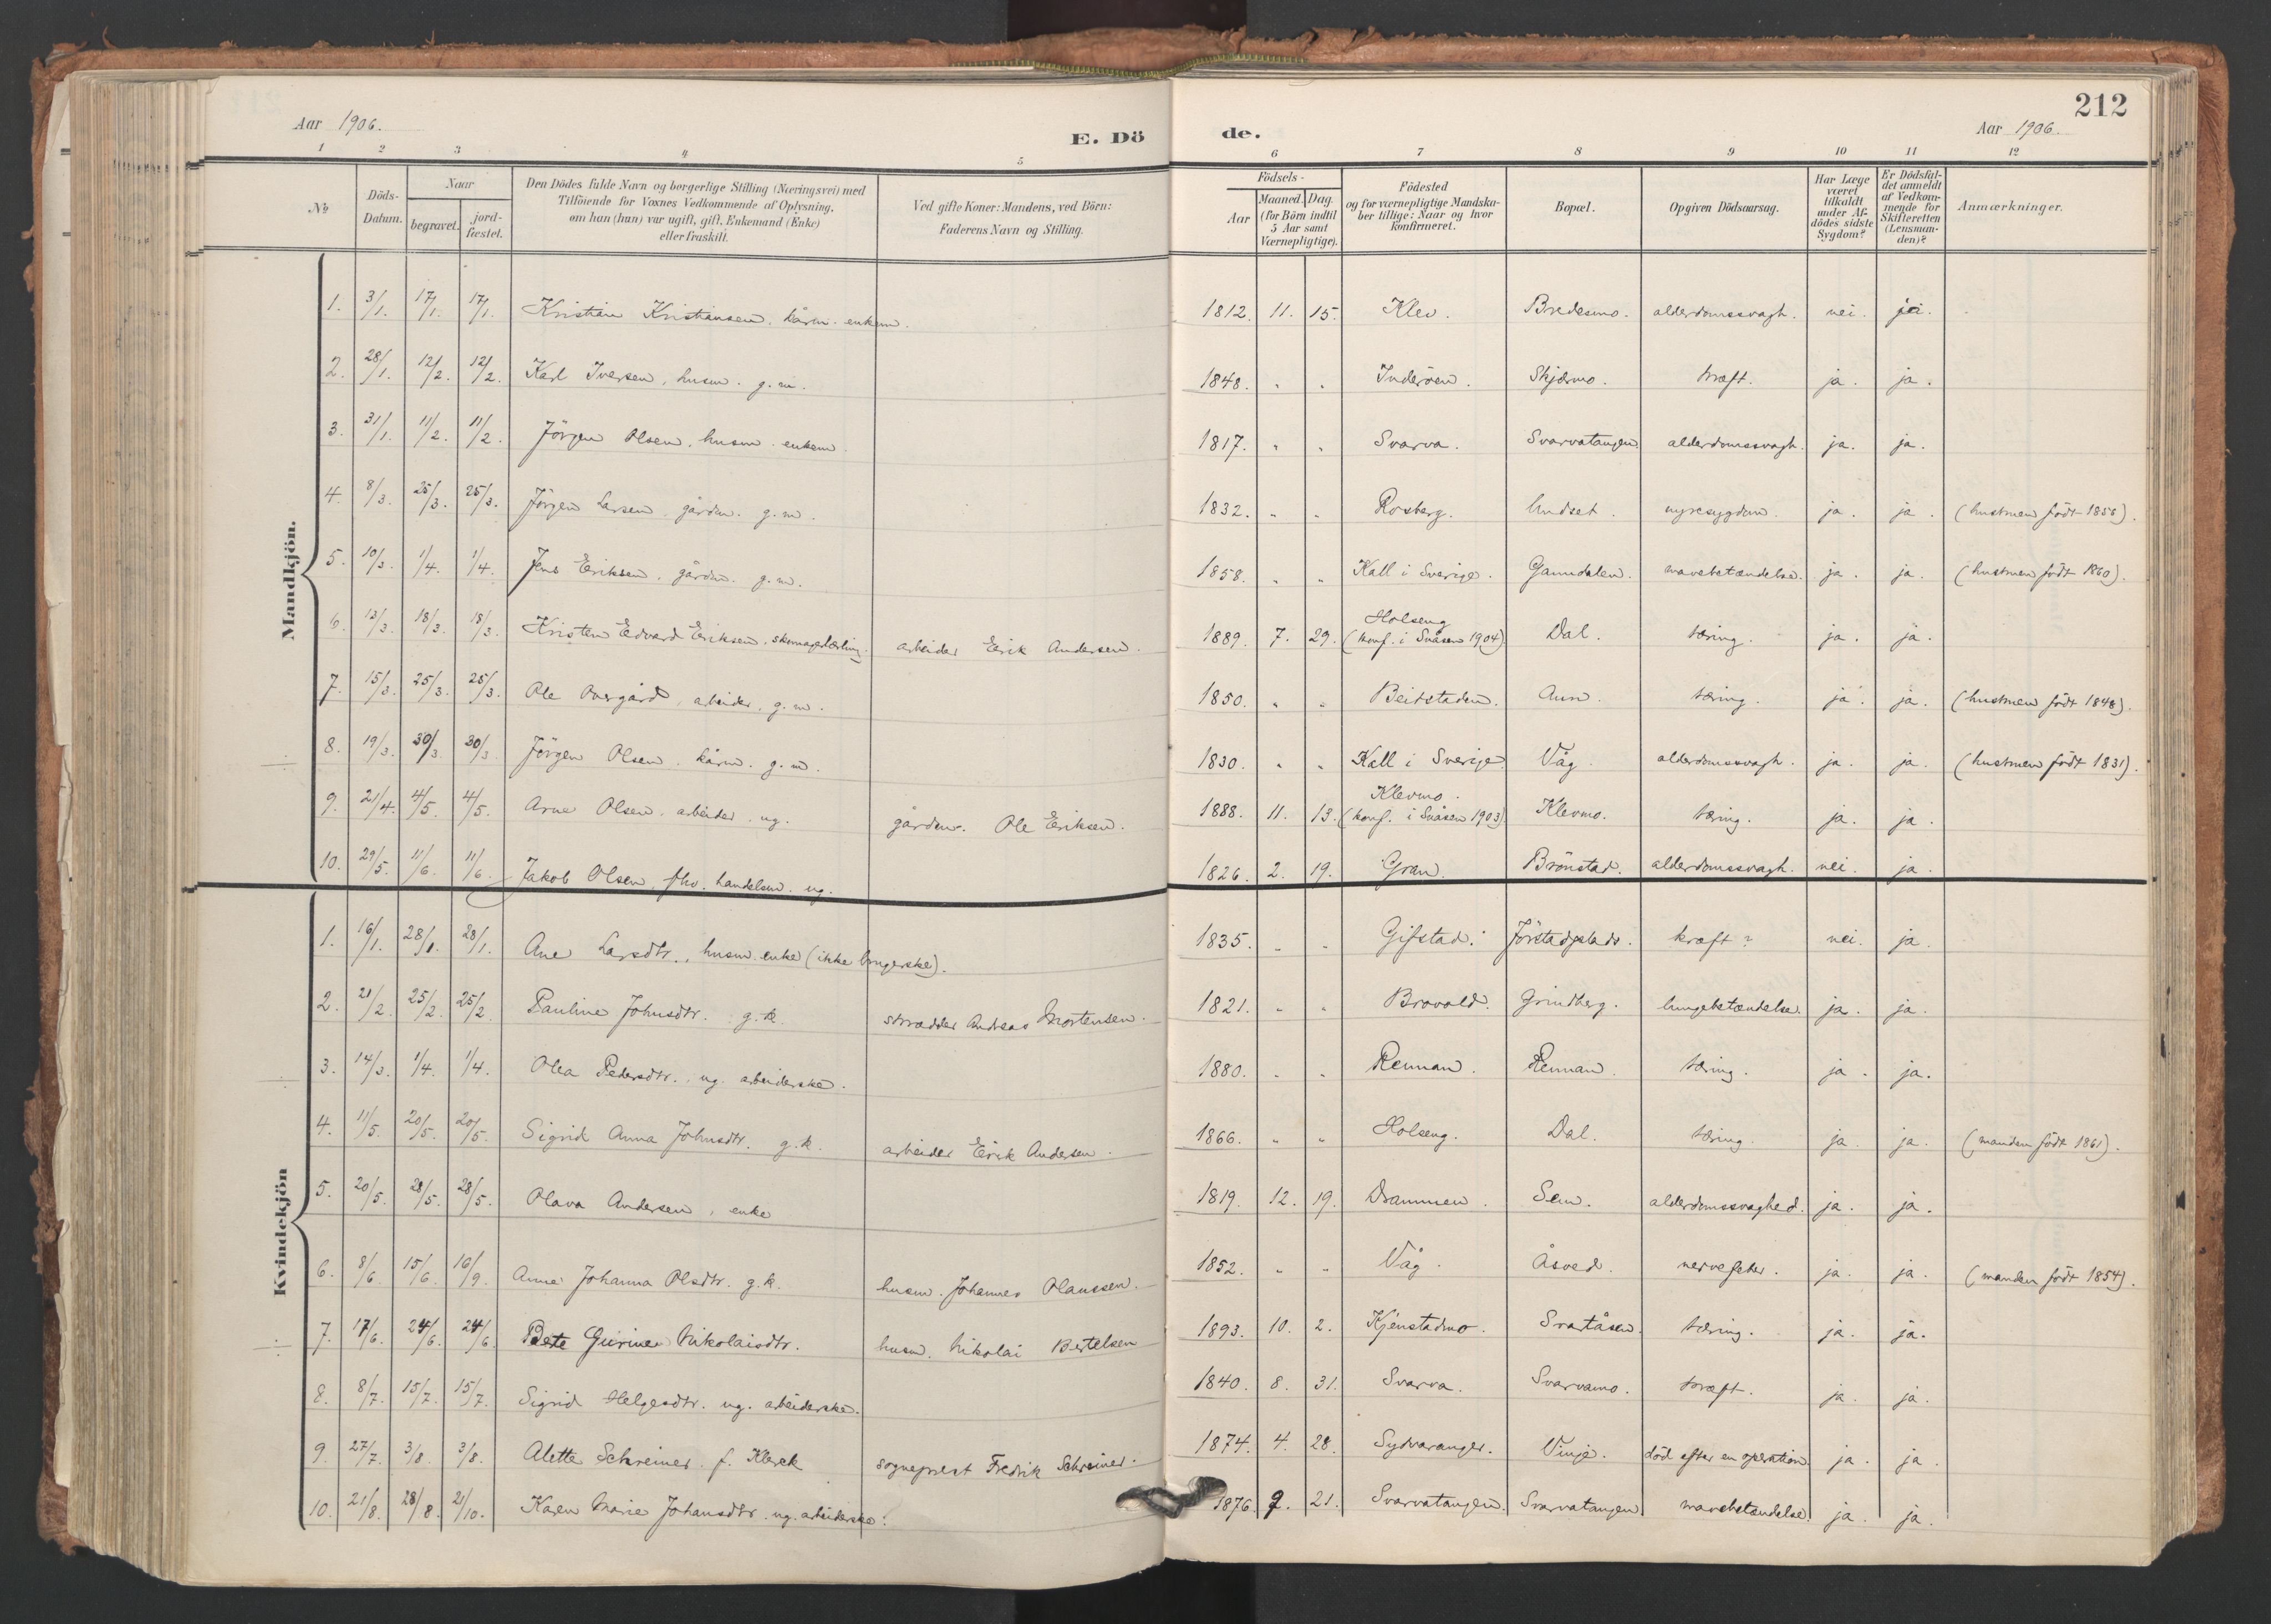 212
Aar 1906.
E. Dö de.
Aar 1906.
1 2 3 4 5 6 7 8 9 10 11 12
No
Döds-Datum.
Naar
begravet.
jord-fæstet.
Den Dödes fulde Navn og borgerlige Stilling (Næringsvei) med
Tilföiende for Voxnes Vedkommende af Oplysning,
om han (hun) var ugift, gift, Enkemand (Enke)
eller fraskilt.
Ved gifte Koner: Mandens, ved Börn:
Faderens Navn og Stilling.
Födsels-
Aar
Maaned. Dag.
(for Börn indtil
5 Aar samt
Værnepligtige).
Födested
og for værnepligtige Mandska-
ber tillige: Naar og hvor
konfirmeret.
Bopæl.
Opgiven Dödsaarsag.
Har Læge
været
tilkaldt
under Af-
dödes sidste
Sygdom?
Er Dödsfal-
det anmeldt
af Vedkom-
mende for
Skifteretten
(Lensman-
den)?
Anmærkninger.
Mandkjön.
1. 3/1. 17/1. 17/1. Kristian Kristiansen, kårm. enkem. 1812. 11. 15. Klev. Bredesmo. alderdomssvagh. nei. ja.
2. 28/1. 12/2. 12/2. Karl Iversen, husm. g. m. 1848. " " Inderöen. Skjærmo. kræft. ja. ja.
3. 31/1. 11/2. 11/2. Jörgen Olsen, husm. enkem. 1817. " " Svarva. Svarvatangen. alderdomssvagh. ja. ja.
4. 8/3. 25/3. 25/3. Jörgen Larsen, gårdm. g. m. 1832. " " Rosberg. nyresygdom. ja. ja. (hustruen födt 1856).
5. 10/3. 1/4. 1/4. Jens Eriksen, gårdm. g. m. 1858. " " Kall i Sverige. Gaundalen. mavebetændelse. ja. ja. (hustruen födt 1860).
6. 13/3. 18/3. 18/3. Kristen Edvard Eriksen, skomagerlærling. arbeider Erik Andersen. 1889. 7. 29. Holseng (konf. i Snåsen 1904) Dal. tæring. ja. ja.
7. 15/3. 25/3. 25/3. Ole Overgård, arbeider, g. m. 1850. " " Beitstaden. Aun. tæring. ja. ja. (hustruen födt 1848).
8. 19/3. 30/3. 30/3. Jörgen Olsen, kårm. g. m. 1830. " " Kall i Sverige. Våg. alderdomssvagh. ja. ja. (hustruen födt 1831).
9. 21/4. 4/5. 4/5. Arne Olsen, arbeider, ug. gårdm. Ole Eriksen. 1888. 11. 13. Klevmo. (konf. i Snåsen 1903) Klevmo. tæring. ja. ja.
10. 29/5. 11/6. 11/6. Jakob Olsen, fhv. handelsm. ug. 1826. 2. 19. Gran. Brönstad. alderdomssvagh. nei. ja.
Kvindekjön
1. 16/1. 28/1. 28/1. Ane Larsdtr., husm. enke (ikke brugerske). 1835. " " Gifstad. Jörstadplads. kræft? nei. ja.
2. 21/2. 25/2. 25/2. Pauline Johnsdtr. g. k. skrædder Andreas Mortensen. 1821. " " Brovold. Grindberg. lungebetændelse. ja. ja.
3. 14/3. 1/4. 1/4. Olea Pedersdtr., ug. arbeiderske. 1880. " " Rennan. Rennan. tæring. ja. ja.
4. 11/5. 20/5. 20/5. Sigrid Anna Johnsdtr. g. k. arbeider Erik Andersen. 1866. " " Holseng. Dal. tæring. ja. ja. (manden födt 1861).
5. 20/5. 28/5. 28/5. Olava Andersen, enke 1819. 12. 19. Drammen. Sem. alderdomssvaghed. ja. ja.
6. 8/6. 15/6. 16/9. Anne Johanna Olsdtr. g. k. husm. Johannes Olaussen. 1852. " " Våg. Åsved. nervefeber. ja. ja. (manden födt 1854).
7. 17/6. 24/6. 24/6. Berte Gurine Nikolaisdtr. husm. Nikolai Bertelsen 1893. 10. 2. Kjenstadmo. Svartåsen. tæring. ja. ja.
8. 8/7. 15/7. 15/7. Sigrid Helgesdtr. ug. arbeiderske. 1840. 8. 31. Svarva. Svarvamo. kræft. ja. ja.
9. 27/7. 3/8. 3/8. Alette Schreiner f. Klerck sogneprest Fredrik Schreiner. 1874. 4. 28. Sydvaranger. Vinje. död efter en operation. ja. ja.
10. 21/8. 28/8. 21/10. Karen Marie Johansdtr. ug. arbeiderske. 1876. 9. 21. Svarvatangen. Svarvatangen. mavebetændelse. ja. ja.